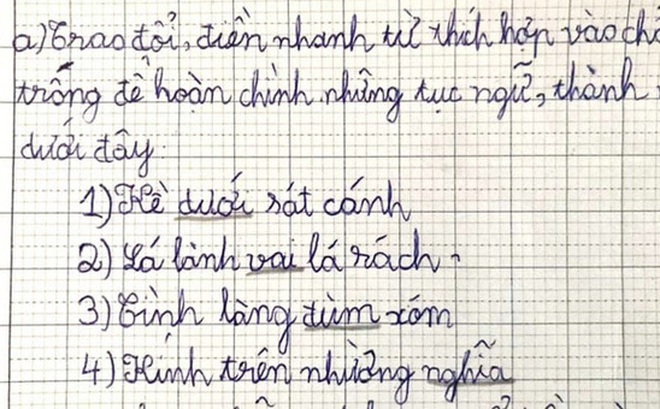 a) Trao đổi, điền nhanh từ thích hợp vào chỗ
trống để hoàn chỉnh những tục ngữ, thành
dưới đây.
1) Kề dưới sát cánh
2) Lá lành vai lá rách.
3) Tình làng đùm xóm
4) Kính trên nhường nghĩa